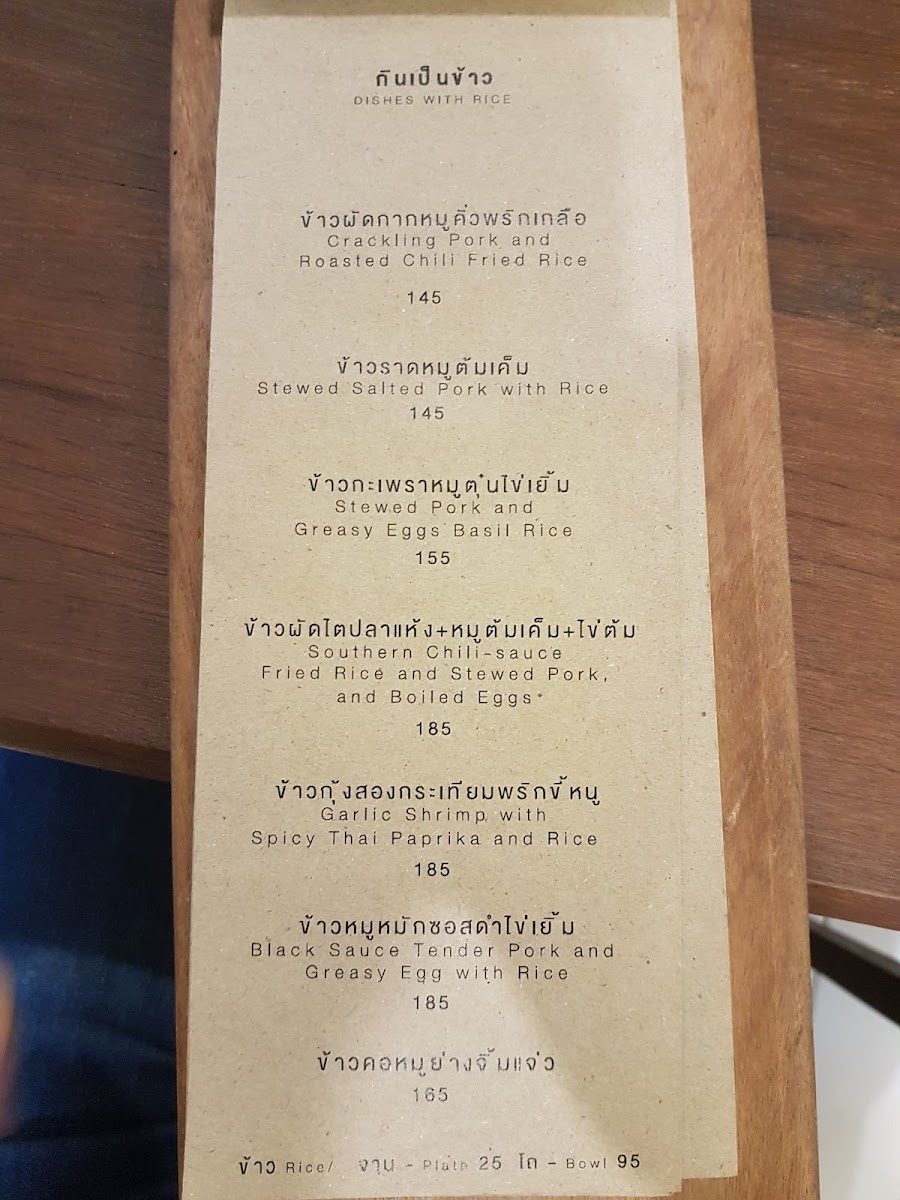 กินเป็นข้าว
DISHES WITH RICE
ข้าวผัดกากหมูคั่วพริกเกลือ
Crackling Pork and
Roasted Chili Fried Rice
145
ข้าวราดหมูต้มเค็ม
Stewed Salted Pork with Rice
145
ข้าวกะเพราหมูตุ๋นไข่เยิ้ม
Stewed Pork and
Greasy Eggs Basil Rice
155
ข้าวผัดไตปลาแห้ง+หมูต้มเค็ม+ไข่ต้ม
Southern Chili-sauce
Fried Rice and Stewed Pork,
and Boiled Eggs
185
ข้าวกุ้งสองกระเทียมพริกขี้หนู
Garlic Shrimp with
Spicy Thai Paprika and Rice
185
ข้าวหมูหมักซอสดำไข่เยิ้ม
Black Sauce Tender Pork and
Greasy Egg with Rice
185
ข้าวคอหมูย่างจิ้มแจ่ว
165
ข้าว Rice/ จาน - Plate 25 โถ - Bowl 95